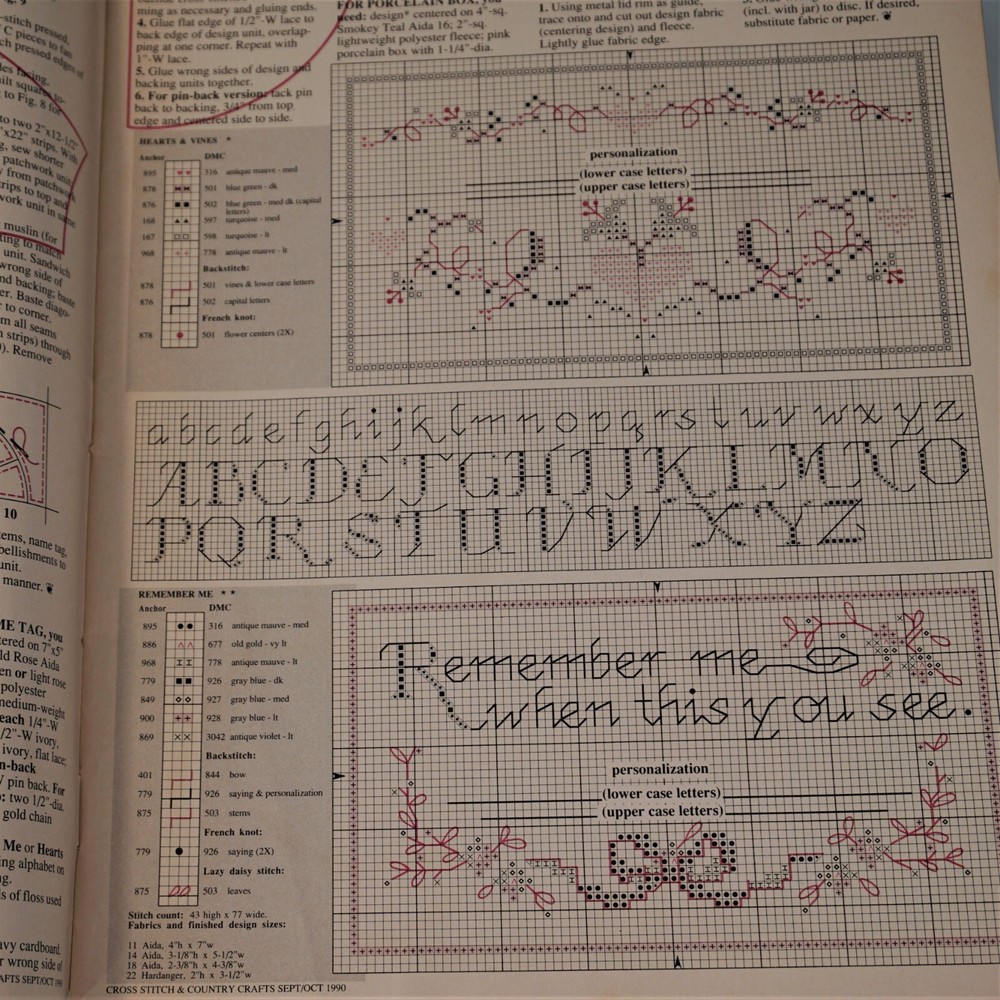 -stitch pressed,
C pieces to fan
ch pressed edges of
les facing,
uilt squares to-
to Fig. 8 for
to two 2"x12-1/2"
"x22" strips. With
g, sew shorter
patchwork unit
y from patchwork
trips to top and
work unit in same
muslin (for
ting to match
unit. Sandwich
wrong side of
nd backing; baste
er. Baste diago-
r to corner.
m all seams
n strips) through
). Remove
10
tems, name tag,
bellishments to
unit.
manner.
ME TAG, you
tered on 7"x5"
ld Rose Aida
en or light rose
polyester
medium-weight
each 1/4"-W
/2"-W ivory,
ivory, flat lace;
n-back
V pin back. For
two 1/2"-dia.
gold chain
Me or Hearts
ing alphabet on
g.
ls of floss used
avy cardboard.
r wrong side of
AFTS SEPT/OCT 1990
ming as necessary and gluing ends.
4. Glue flat edge of 1/2"-W lace to
back edge of design unit, overlap-
ping at one corner. Repeat with
1"-W lace.
5. Glue wrong sides of design and
backing units together.
6. For pin-back version: tack pin
back to backing, 3/4" from top
edge and centered side to side.
FOR PORCELAIN BOX, you
need: design* centered on 4"-sq.
Smokey Teal Aida 16; 2"-sq.
lightweight polyester fleece; pink
porcelain box with 1-1/4"-dia.
1. Using metal lid rim as guide,
trace onto and cut out design fabric
(centering design) and fleece.
Lightly glue fabric edge.
(incl. with jar) to disc. If desired,
substitute fabric or paper.
HEARTS & VINES *
Anchor DMC
895 316 antique mauve - med
878 501 blue green - dk
876 502 blue green - med dk (capital
letters)
168 597 turquoise - med
167 598 turquoise - lt
968 778 antique mauve - lt
Backstitch:
878 501 vines & lower case letters
876 502 capital letters
French knot:
878 501 flower centers (2X)
personalization
(lower case letters)
(upper case letters)
a b c d e f g h i j k l m n o p q r s t u v w x y z
A B C D E F G H I J K L M N O
P Q R S T U V W X Y Z
REMEMBER ME * *
Anchor DMC
895 316 antique mauve - med
886 677 old gold - vy lt
968 778 antique mauve - lt
779 926 gray blue - dk
849 927 gray blue - med
900 928 gray blue - lt
869 3042 antique violet - lt
Backstitch:
401 844 bow
779 926 saying & personalization
875 503 stems
French knot:
779 926 saying (2X)
Lazy daisy stitch:
875 503 leaves
Stitch count: 43 high x 77 wide.
Fabrics and finished design sizes:
11 Aida, 4"h x 7"w
14 Aida, 3-1/8"h x 5-1/2"w
18 Aida, 2-3/8"h x 4-3/8"w
22 Hardanger, 2"h x 3-1/2"w
Remember me
when this you see.
personalization
(lower case letters)
(upper case letters)
CROSS STITCH & COUNTRY CRAFTS SEPT/OCT 1990